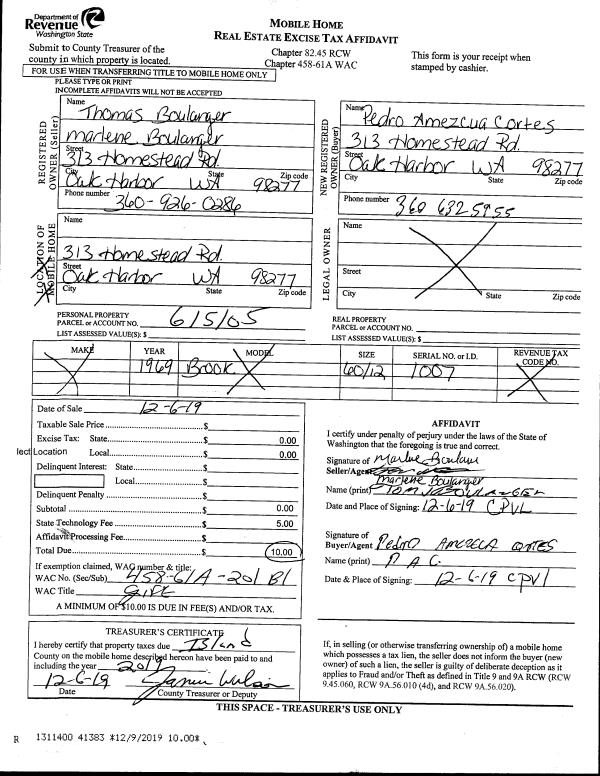 Department of
Revenue
Washington State
MOBILE HOME
REAL ESTATE EXCISE TAX AFFIDAVIT
Submit to County Treasurer of the
county in which property is located.
Chapter 82.45 RCW
Chapter 458-61A WAC
This form is your receipt when
stamped by cashier.
FOR USE WHEN TRANSFERRING TITLE TO MOBILE HOME ONLY
PLEASE TYPE OR PRINT
INCOMPLETE AFFIDAVITS WILL NOT BE ACCEPTED
REGISTERED
OWNER (Seller)
Name
Thomas Boulanger
Marlene Boulanger
Street
313 Homestead Rd.
City State Zip code
Oak Harbor WA 98277
Phone number
360-926-0286
NEW REGISTERED
OWNER (Buyer)
Name
Pedro Amezcua Cortes
313 Homestead Rd.
Street
Oak Harbor WA 98277
City State Zip code
Phone number 360 632 5955
LOCATION OF
MOBILE HOME
Name
313 Homestead Rd.
Street
Oak Harbor WA 98277
City State Zip code
LEGAL OWNER
Name
Street
City State Zip code
PERSONAL PROPERTY
PARCEL or ACCOUNT NO. 615105
LIST ASSESSED VALUE(S): $
REAL PROPERTY
PARCEL or ACCOUNT NO.
LIST ASSESSED VALUE(S): $
MAKE YEAR MODEL SIZE SERIAL NO. or I.D. REVENUE TAX
CODE NO.
1969 Brook 60/12 1007
Date of Sale 12-6-19
Taxable Sale Price $
Excise Tax: State $ 0.00
lect Location Local $ 0.00
Delinquent Interest: State $
Local $
Delinquent Penalty $
Subtotal $ 0.00
State Technology Fee $ 5.00
Affidavit Processing Fee $
Total Due $ 10.00
If exemption claimed, WAC number & title:
WAC No. (Sec/Sub) 458-61A-201 B1
WAC Title Gift
A MINIMUM OF $10.00 IS DUE IN FEE(S) AND/OR TAX.
AFFIDAVIT
I certify under penalty of perjury under the laws of the State of
Washington that the foregoing is true and correct.
Signature of
Seller/Agent
Marlene Boulanger
Name (print)
Date and Place of Signing: 12-6-19 CPVL
Signature of
Buyer/Agent Pedro Amezcua Cortes
Name (print) P A C
Date & Place of Signing: 12-6-19 CPVL
TREASURER'S CERTIFICATE
I hereby certify that property taxes due Island
County on the mobile home described hereon have been paid to and
including the year 2019
12-6-19
Date County Treasurer or Deputy
If, in selling (or otherwise transferring ownership of) a mobile home
which possesses a tax lien, the seller does not inform the buyer (new
owner) of such a lien, the seller is guilty of deliberate deception as it
applies to Fraud and/or Theft as defined in Title 9 and 9A RCW (RCW
9.45.060, RCW 9A.56.010 (4d), and RCW 9A.56.020).
THIS SPACE - TREASURER'S USE ONLY
R 1311400 41383 *12/9/2019 10.00*